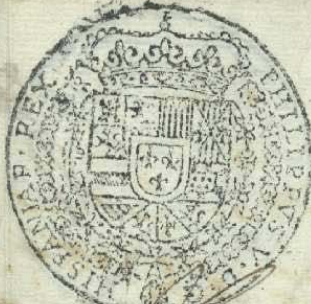 PHILIPPVS·V·D·
HISPANIAR·REX